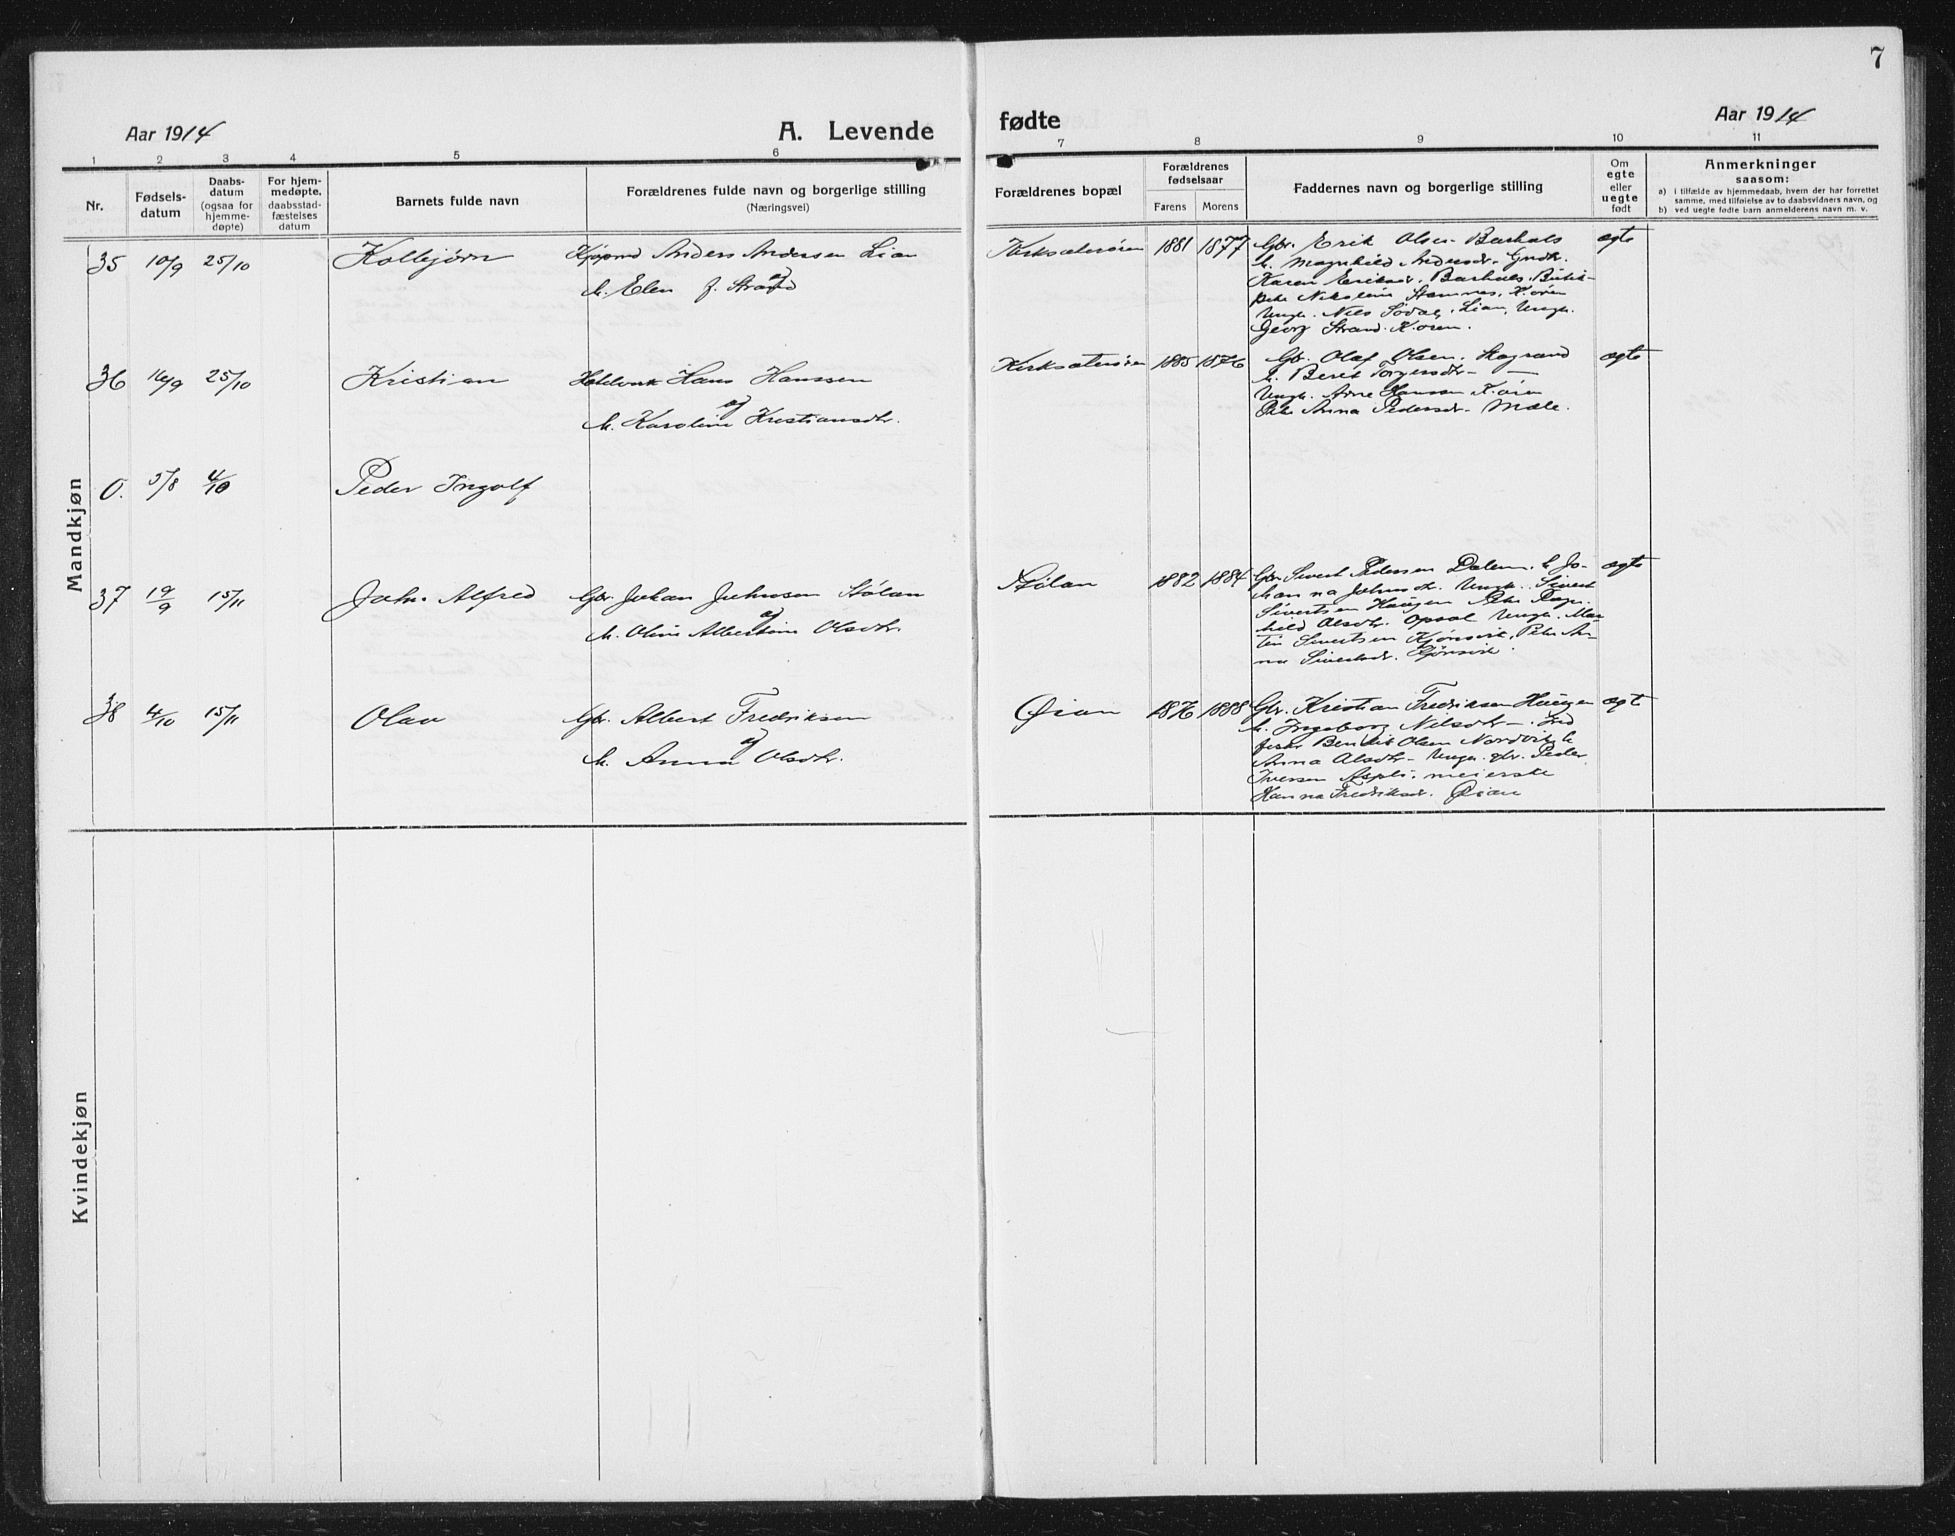 7
Aar 1914
A. Levende
fødte
Aar 1914
1 2 3 4 5 6 7 8 9 10 11
Nr.
Fødsels-
datum
Daabs-
datum
(ogsaa for
hjemme-
døpte)
For hjem-
medøpte,
daabsstad-
fæstelses
datum
Barnets fulde navn
Forældrenes fulde navn og borgerlige stilling
(Næringsvei)
Forældrenes bopæl
Forældrenes
fødselsaar
Farens Morens
Faddernes navn og borgerlige stilling
Om
egte
eller
uegte
født
Anmerkninger
saasom:
a) i tilfælde av hjemmedaab, hvem der har forrettet
samme, med tilføielse av to daabsvidners navn, og
b) ved uegte fødte barn anmelderens navn m. v.
Mandkjøn
35 10/9 25/10 Kolbjørn Kjøpmd Anders Andersen Lian
og
h. Elen f. Strand
Kirksæterøren 1881 1877
Gbr. Erik Olsen Barhals
h. Magnhild Andersdr.
Karen Eriksdr. Barhals.
Stamnes, K.øren
Ungk. Nils Sødal, Lian, Ungk.
Georg Strand K.øren.
egte
36 16/9 25/10 Kristian Hans Hanssen
og
h. Karoline Kristiansdtr.
Kirksæterøren 1885 1876
Gbr. Olaf Olsen
h. Berit Torgersdtr —
Ungk. Arne Hansen K.øren
Pike Anna Pedersdr. Mæle.
egte
0. 5/8 4/10 Peder Ingolf
37 19/9 15/11 John Alfred Gbr. Johan Johnsen Stølan
og
h. Oline Albertine Olsdtr.
Stølan 1882 1884
Gbr. Sivert Pedersen Dalem. h. Jo-
hanna Johnsdr. Ungk. Sivert
Sivertsen Haugen Pike Ragn-
hild Olsdtr. Opsal Ungk. Mar-
tin Sivertsen Kjønsvik, Pike An-
na Sivertsdr. Kjønsvik.
egte
38 4/10 15/11 Olav Gbr. Albert Fredriksen
og
h. Anna Olsdtr.
Øian 1876 1888
Gbr. Kristian Fredriksen Haugen
h. Ingeborg Nilsdtr —. Ind
Bendik Olsen Nordvik h
Anna Olsdtr — Ungk. gbr. Peder
Iversen Aspli. meierske
Hanna Fredriksdr. Øian
egte
Kvindekjøn